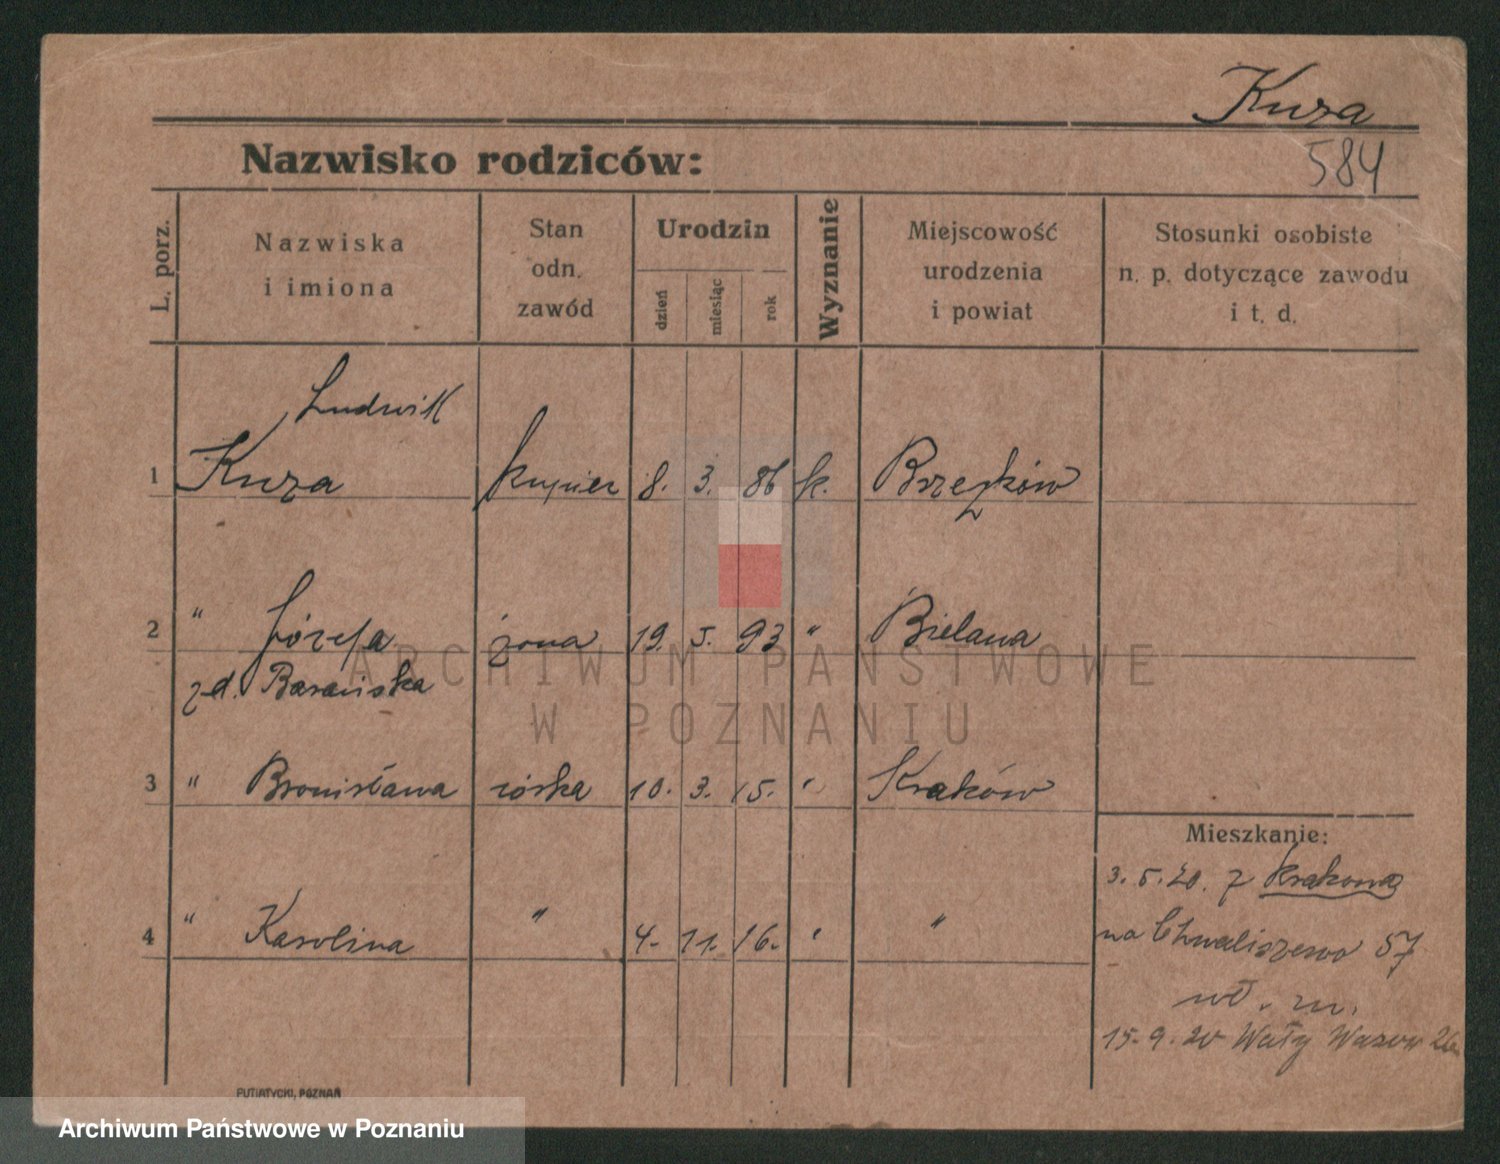 Kuza
Nazwisko rodziców:
584
L. porz.
Nazwiska
i imiona
Stan
odn.
zawód
Urodzin
dzień
miesiąc
rok
Wyznanie
Miejscowość
urodzenia
i powiat
Stosunki osobiste
n. p. dotyczące zawodu
i t. d.
Ludwik
1 Kuza kupiec 8. 3. 86 k. Brzezków
2 " Józefa żona 19. 5. 93 " Bielawa
zd. Barańska
3 " Bronisława córka 10. 3. 15. " Kraków
Mieszkanie:
3. 5. 20. z Krakowa
4 " Karolina " 4. 11. 16. " "
na Chwaliszewo 57
wł. m.
15. 9. 20 Wały Wazów
PUTIATYCKI, POZNAŃ
ARCHIWUM PAŃSTWOWE
W POZNANIU
Archiwum Państwowe w Poznaniu